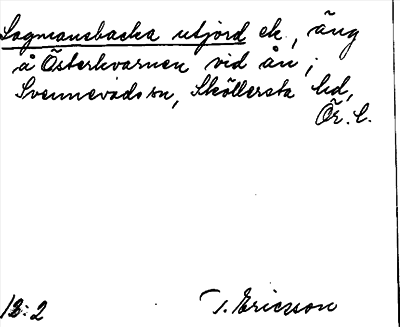 Lagmansbacka utjord ek, äng
å Österkvarnen vid ån;
Svennevads sn, Sköllersta hd,
Ör. l.
13:2 T. Ericsson